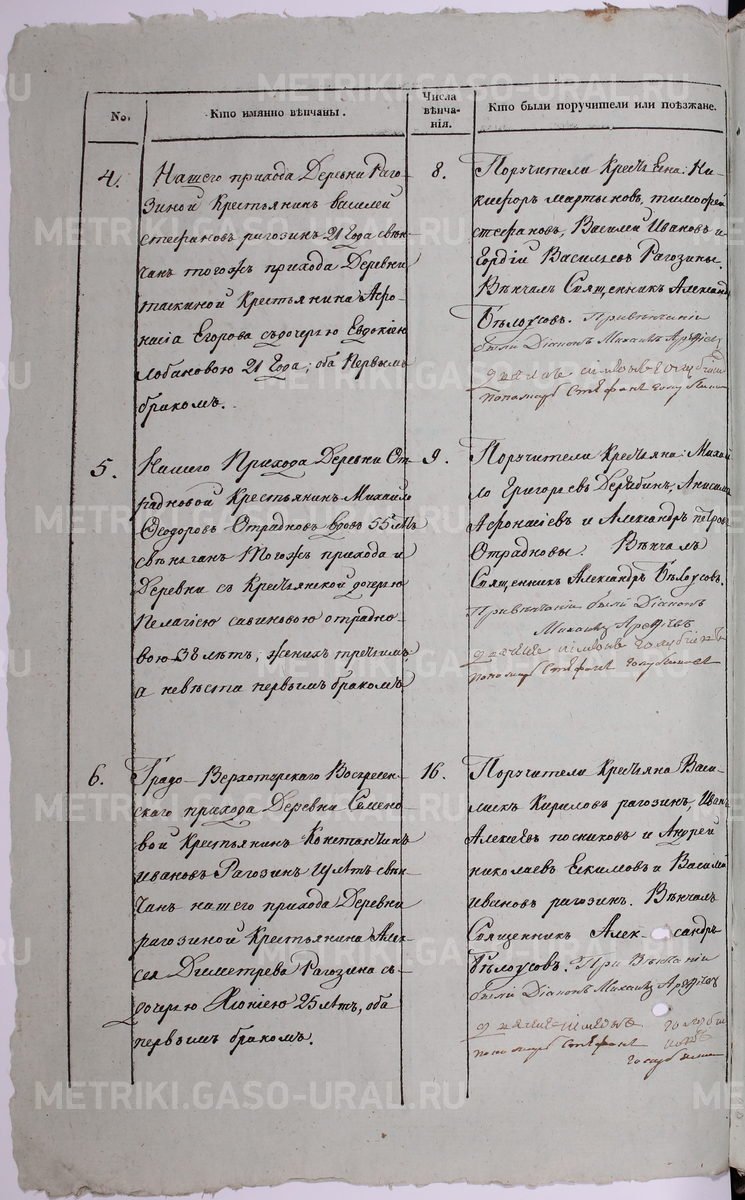 No.
Кто имянно вѣнчаны.
Числа
вѣнча-
нія.
Кто были поручители или поѣзжане.
4.
Нашего прихода Деревни Раго-
зиной Крестьянинъ василей
стефановъ рагозинъ 21 Года свѣн-
чанъ тогожъ прихода Деревни
таскиной Крестьянина Афо-
насіа Егорова съдочерью Евдокіею
лобановою 21 Года; оба Первымъ
бракомъ.
8.
Поручители Крестьяна: Ни-
кифоръ мартыновъ, тимофей
стефановъ, Василій Ивановъ и
Гордій Васильевъ Рагозины.
Вѣнчалъ Священникъ Александръ
Бѣлоусовъ. Привѣнчаніи
были Діаконъ Михаилъ Арефіевъ
понамарь Стефанъ
5.
Нашего Прихода Деревни От-
радновой Крестьянинъ Михайло
Ѳеодоровъ Отрадновъ вдовъ 55 лѣтъ
свѣнчанъ Тогожъ прихода и
Деревни съ Крестьянской дочерью
Пелагіею савиновою отрадно-
вою 38 лѣтъ, женихъ третьимъ
а невѣста первымъ бракомъ
9.
Поручители Крестьяна: Михай-
ло Григорьевъ Дерябинъ, Анисимъ
Афонасіевъ и Александръ петровъ
Отрадновы. Вѣнчалъ
Священникъ Александръ Бѣлоусовъ.
Привѣнчаніи были Діаконъ
Михаилъ Арефіевъ
понамарь Стефанъ
6.
Градо-Верхотурскаго Воскресен-
скаго прихода Деревни Семено-
вой Крестьянинъ Константинъ
ивановъ Рагозинъ 19 лѣтъ свѣн-
чанъ нашего прихода Деревни
рагозиной Крестьянина Алек-
сея Дмитрева Рагозина съ-
дочерью Хіоніею 25 лѣтъ, оба
первымъ бракомъ.
16.
Поручители Крестьяна Васи-
лискъ Кириловъ рагозинъ, Иванъ
Алексѣевъ посниковъ и Андрей
николаевъ Екимовъ и Василій
ивановъ рагозинъ. Вѣнчалъ
Священникъ Алек-сандръ
Бѣлоусовъ. При Вѣнчаніи
были Діаконъ Михаилъ Арефіевъ
понамарь Стефанъ
METRIKI.GASO-URAL.RU